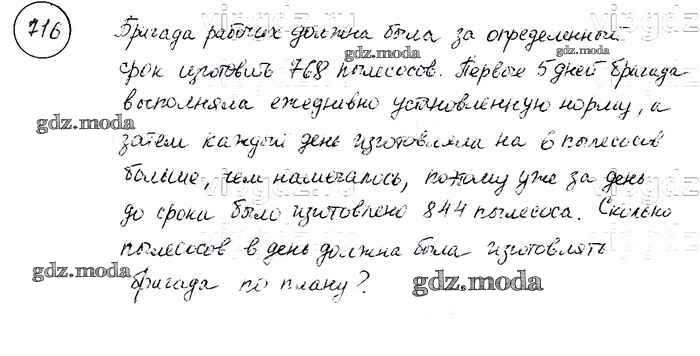 716
Бригада рабочих должна была за определенный
срок изготовить 768 пылесосов. Первые 5 дней бригада
выполняла ежедневно установленную норму, а
затем каждый день изготовляла на 6 пылесосов
больше, чем намечалось, поэтому уже за день
до срока было изготовлено 844 пылесоса. Сколько
пылесосов в день должна была изготовлять
бригада по плану?
gdz.moda
gdz.moda
gdz.moda
gdz.moda
gdz.moda
gdz.moda
gdz.moda